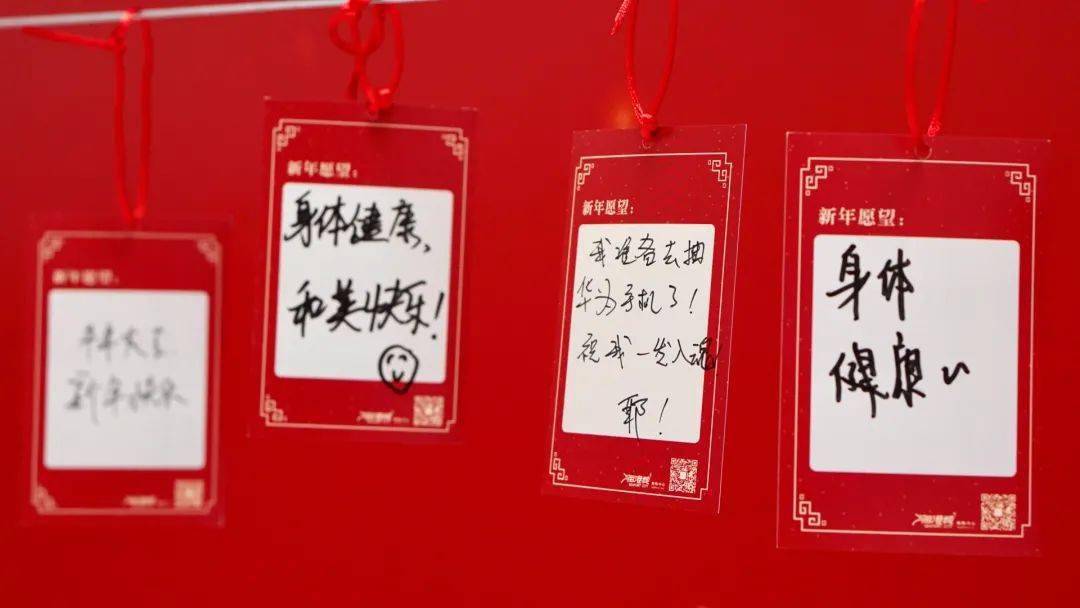 新年愿望:
新年快乐
新年愿望:
身体健康,
和美快乐!
新年愿望:
我准备去抽
华为手机了!
祝我一发入魂!
耶!
新年愿望:
身体
健康~